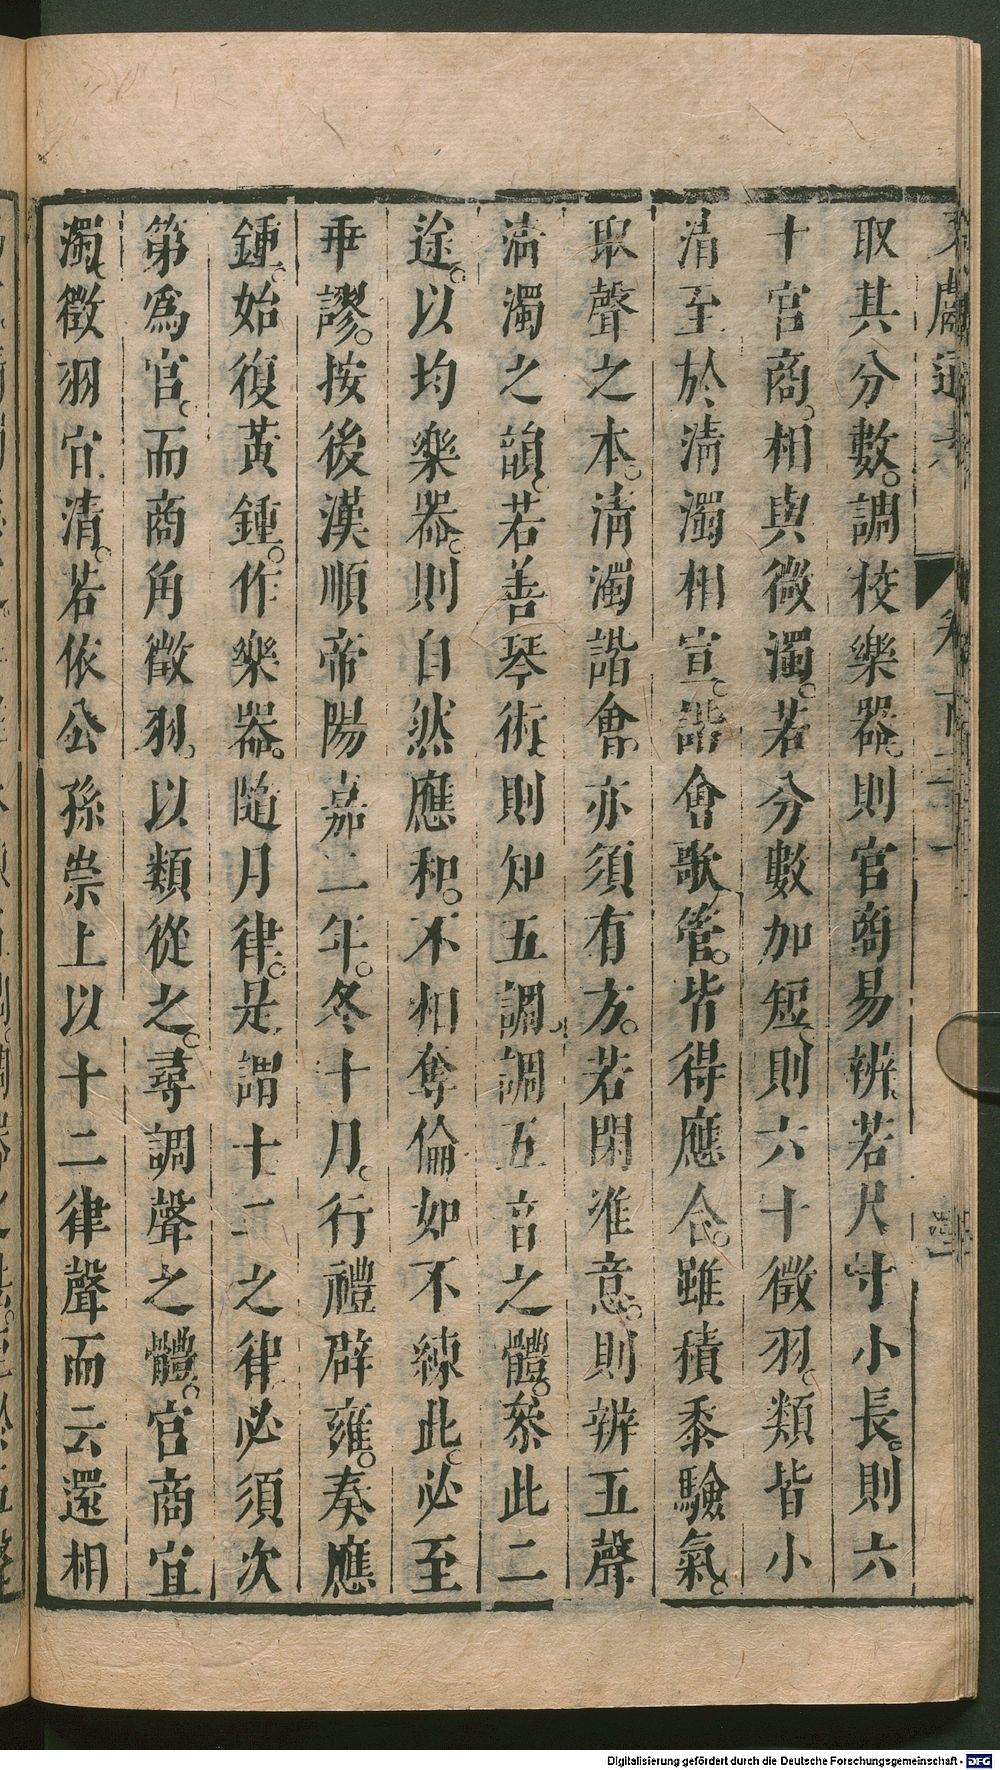 取其分數。調校樂器。則官商易辨。若尺寸小長。則六
十官商。相與微濁。若分數加短。則六十徵羽。類皆小
清至於清濁相宣。諧會歌管。皆得應合。雖積黍驗氣。
取聲之本。清濁諧會。亦須有方。若閑準意。則辨五聲
清濁之韻。若善琴術。則知五調。調五音之體。叅此二
途。以均樂器。則自然應和。不相奪倫如不練此。必至
乖謬。按後漢順帝陽嘉二年。冬十月。行禮辟雍。奏應
鍾。始復黃鍾。作樂器。隨月律。是謂十二之律必須次
第爲官。而商角徵羽。以類從之。尋調聲之體。官商宜
濁。徵羽宜清。若依公孫崇上以十二律聲而云還相
Digitalisierung gefördert durch die Deutsche Forschungsgemeinschaft - DFG